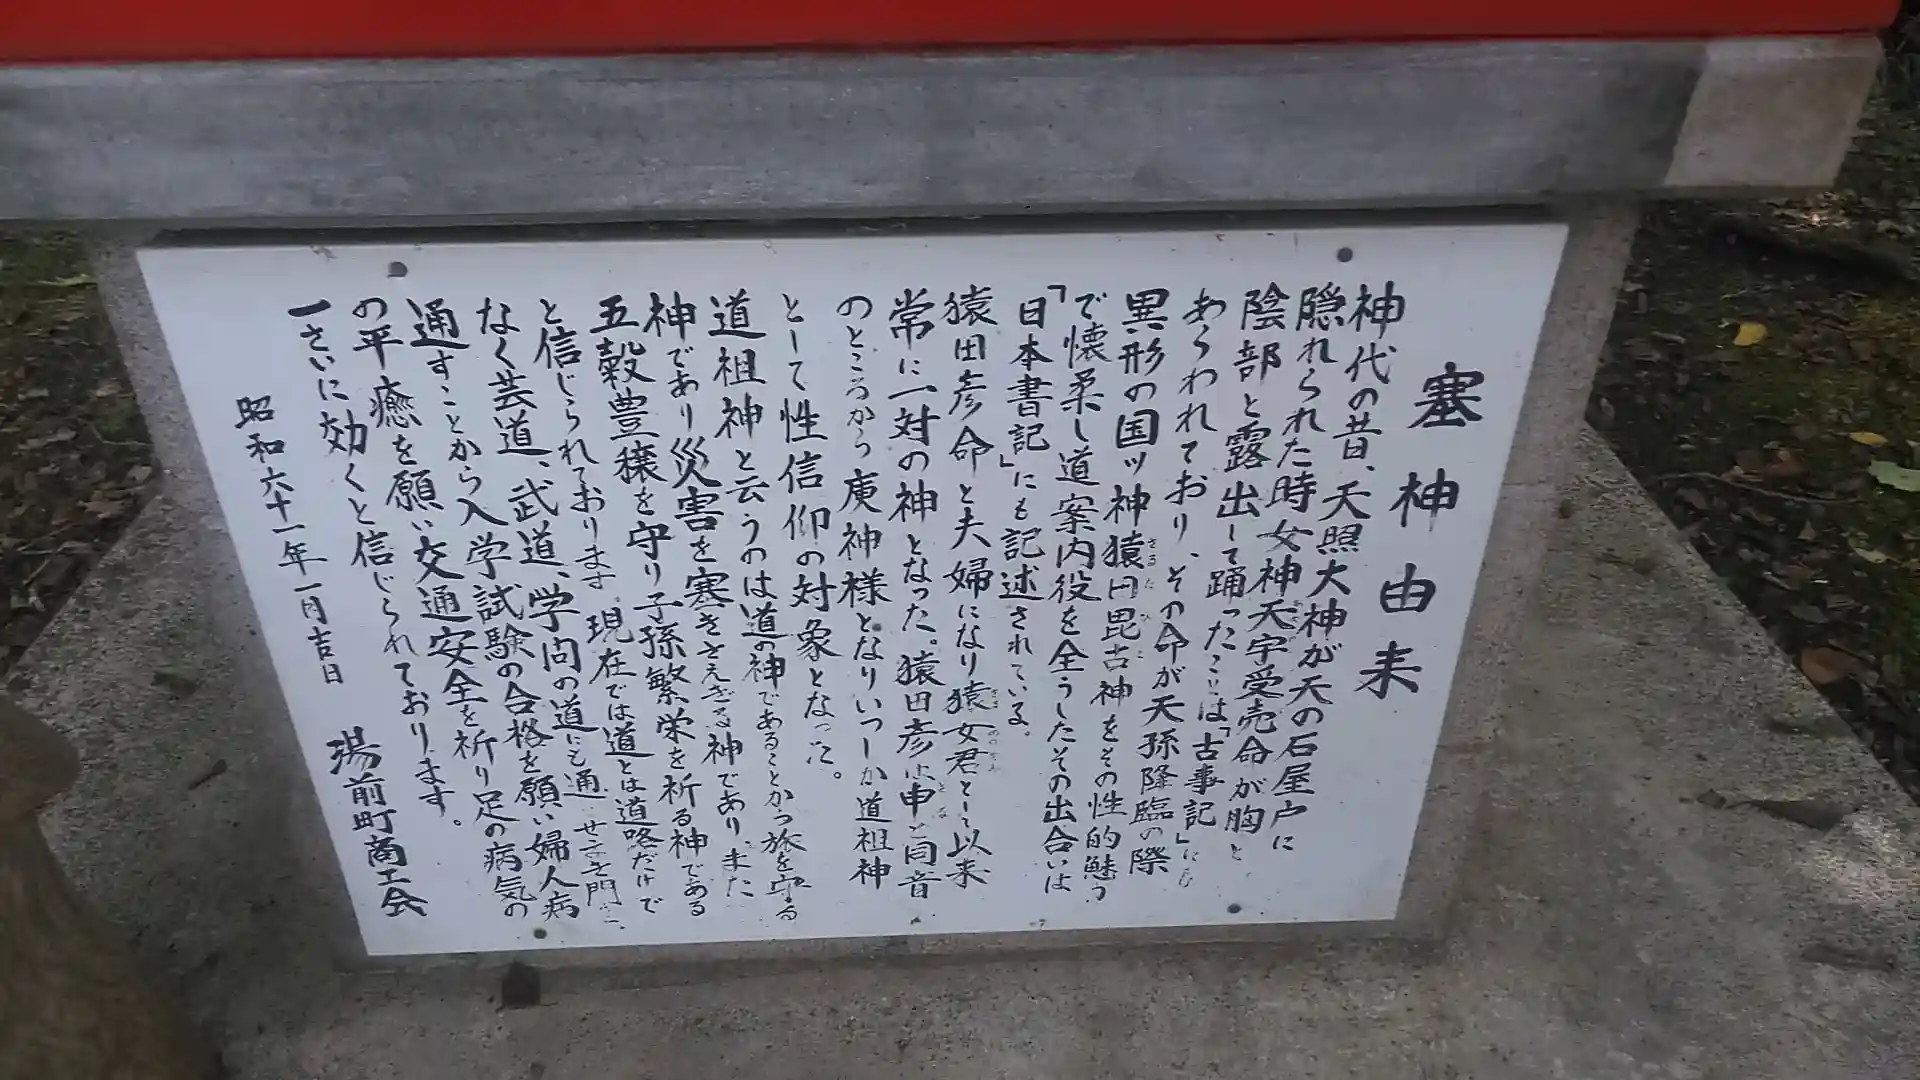 塞神由来
神代の昔、天照大神が天の石屋戸に
隠れられた時女神天宇受売命が胸と
陰部と露出して踊ったことは「古事記」にも
あらわれており、その命が天孫降臨の際
異形の国ツ神猿田毘古神をその性的魅力
で懐柔し道案内役を全うしたその出合いは
「日本書記」にも記述されている。
猿田彦命と夫婦になり猿女君として以来
常に一対の神となった。猿田彦は申と同音
のところから庚神様となりいつしか道祖神
として性信仰の対象となった。
道祖神と云うのは道の神であることから旅を守る
神であり災害を塞ぎさえぎる神であり、また
五穀豊穣を守り子孫繁栄を祈る神である
と信じられております。現在では道とは道路だけで
なく芸道、武道、学問の道にも通
通すことから入学試験の合格を願い婦人病
の平癒を願い交通安全を祈り足の病気の
一さいに効くと信じられております。
昭和六十一年一月吉日 湯前町商工会